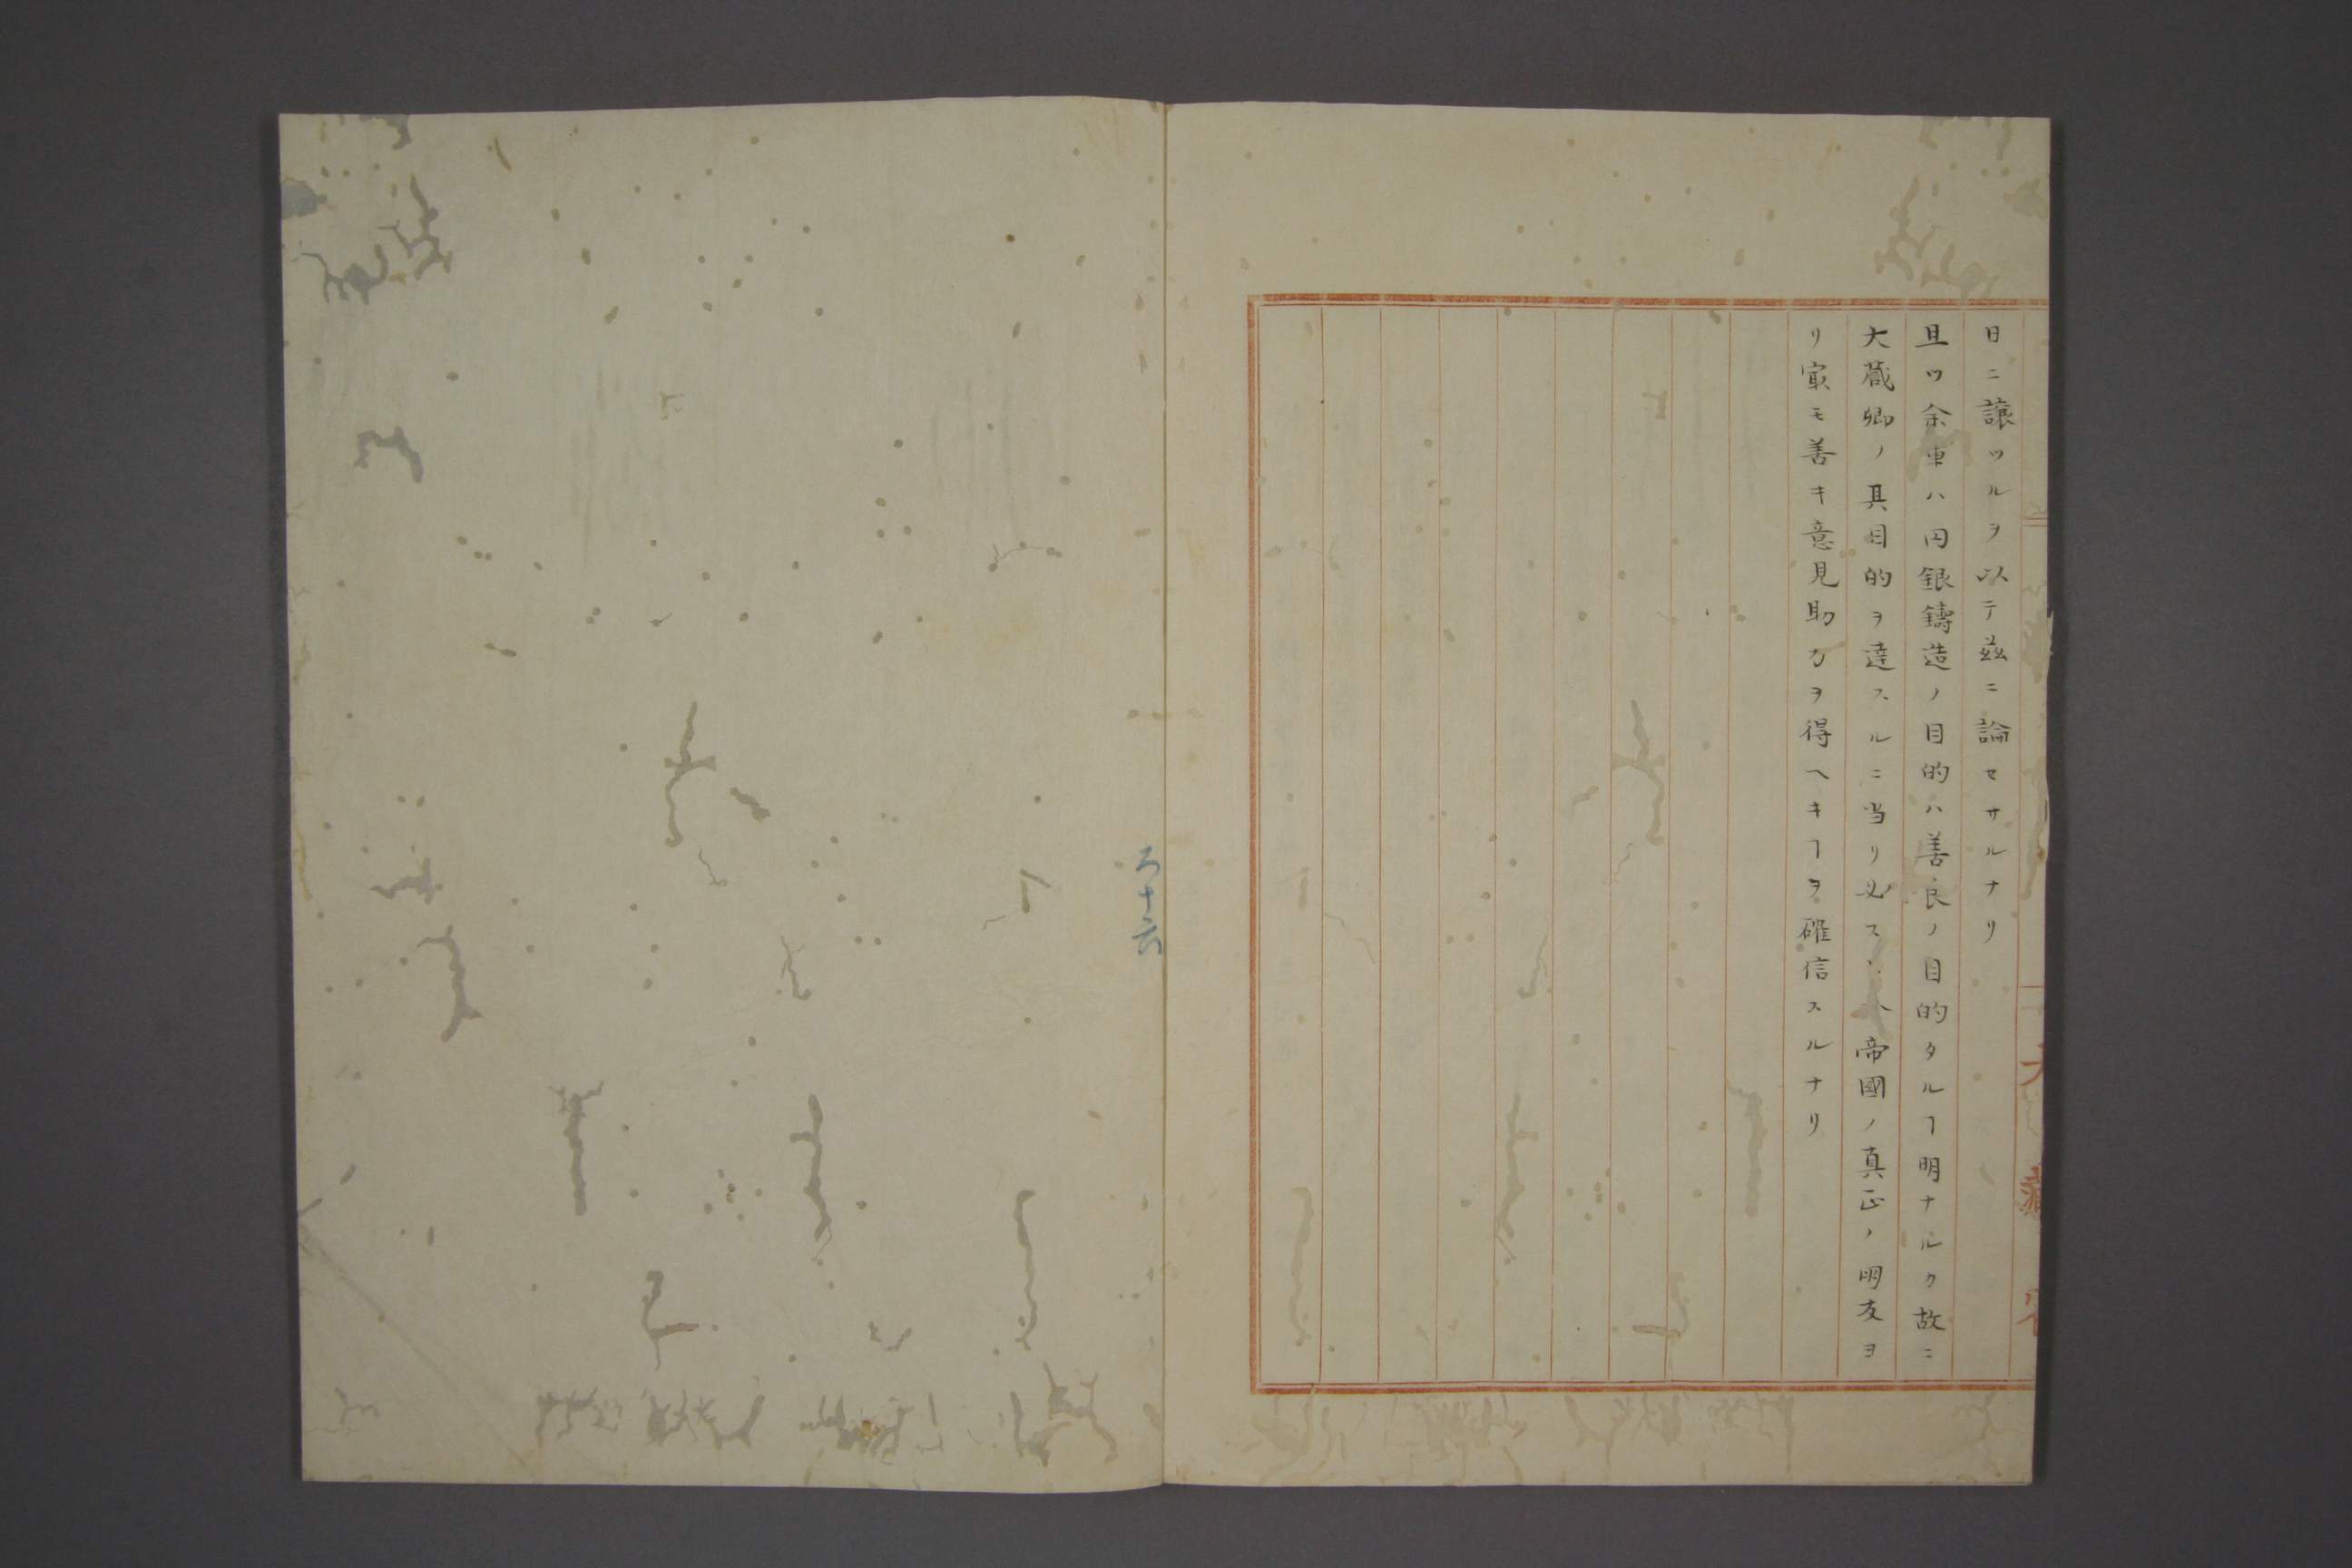 日ニ譲ツルヲ以テ茲ニ論セサルナリ
且ツ余軰ハ円銀鑄造ノ目的ハ善良ノ目的タルヿ明ナルカ故ニ
大蔵卿ノ其目的ヲ達スルニ当リ必ス 帝國ノ真正ノ朋友ヨ
リ冣モ善キ意見助力ヲ得ヘキヿヲ確信スルナリ
大藏省
ろ十六